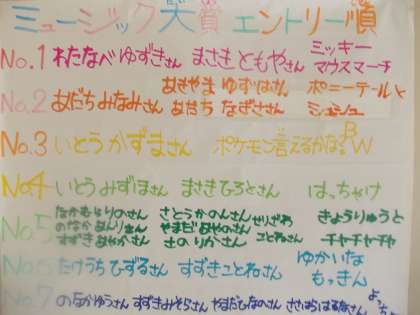 ミュージック大賞 エントリー順
No.1 わたなべ ゆずきさん まさき ともやさん ミッキーマウスマーチ
No.2 あきやま ゆずはさん ポニーテールと
あだちみなみさん あだち なぎささん シュシュ
No.3 いとうかずまさん ポケモン言えるかな?BW
No4 いとうみずほさん まさきひろとさん はっちゃけ
No.5 なかむらりのさん さとうかのんさん せりざわ きょうりゅうと
のなかあんりさん やまだあやのさん ことねさん チャチャチャ
すずきあやかさん さの りかさん
No.6 たけうちひずるさん すずきことねさん ゆかいなもっきん
No.7 のなかゆうさん すずきみそらさん やまだひなのさん ささはらはるなさん